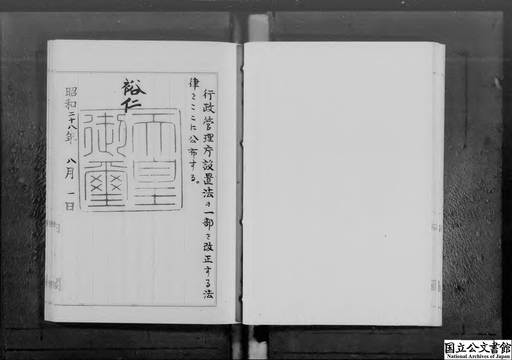 行政管理庁設置法の一部を改正する法
律をここに公布する。
裕仁
天皇
御璽
昭和二十八年 八月 一日
国立公文書館
National Archives of Japan